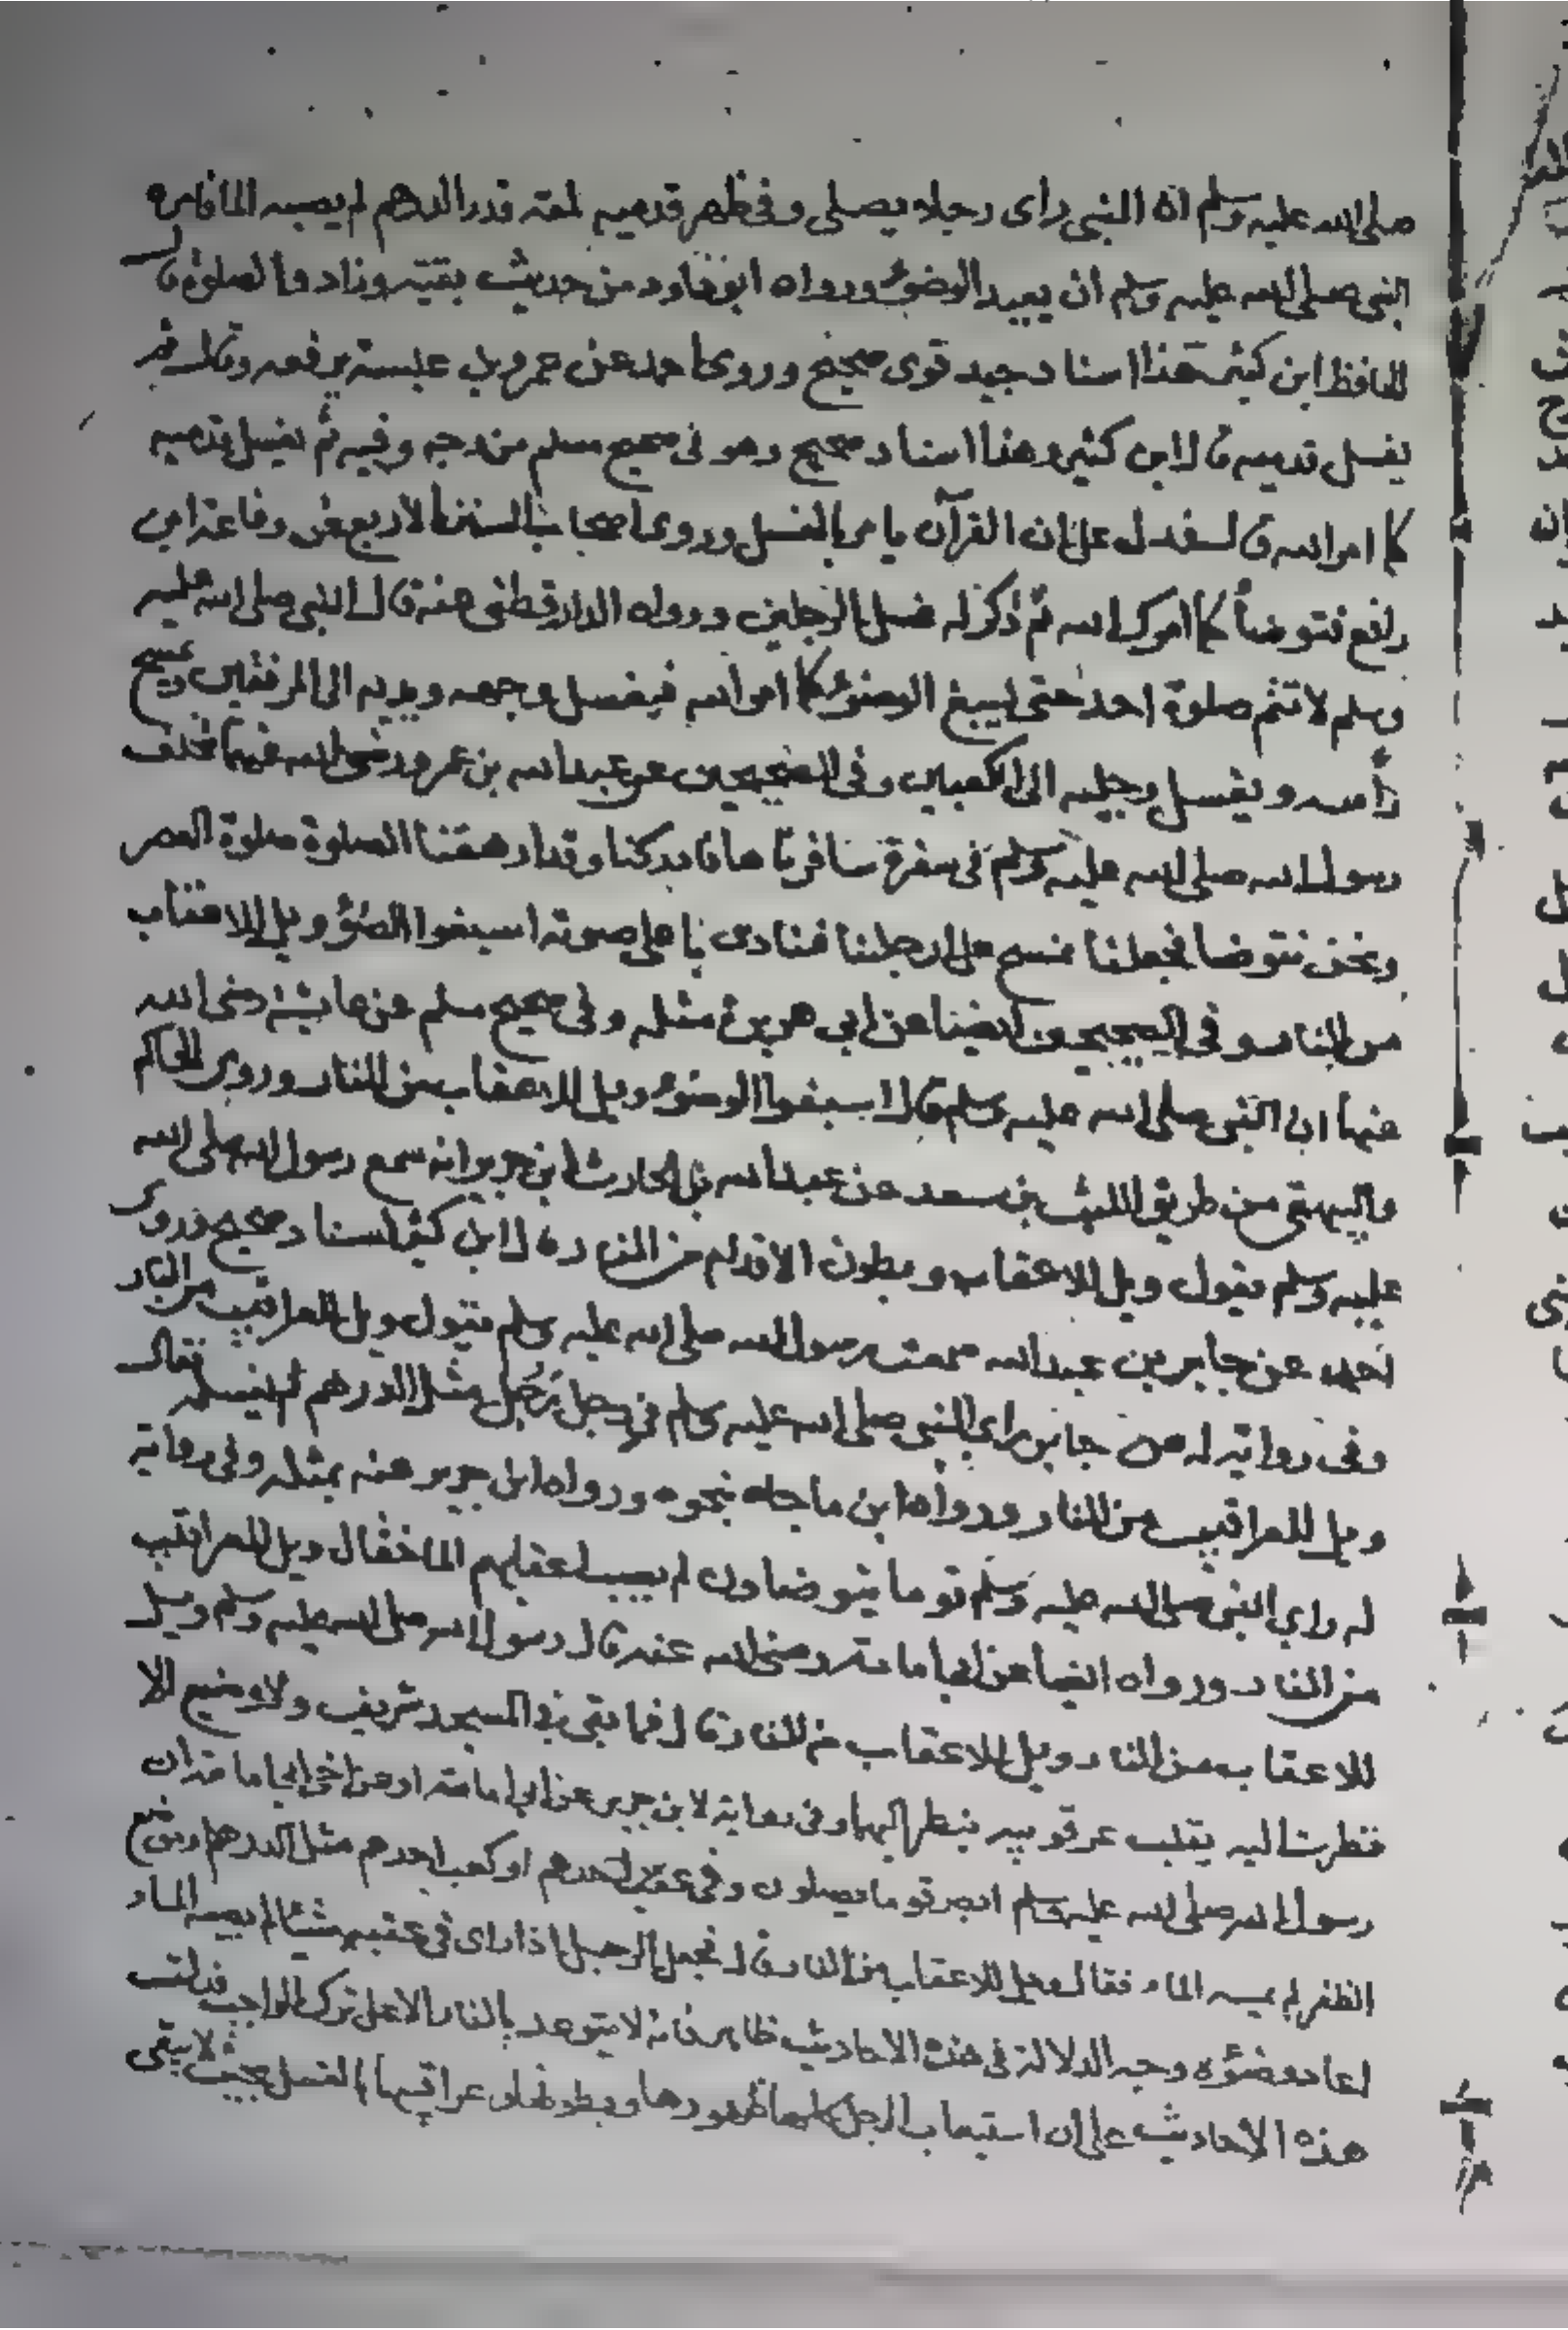 صلى الله عليه وسلم ان النبي راى رجلا يصلي وفي ظهر قدميه لمعة قدر الدرهم لم يصبه الماء فامره
النبي صلى الله عليه وسلم ان يعيد الوضوء ورواه ابو داود من حديث بقية وزاد والصلوة قال
الحافظ ابن كثير هذا اسناد جيد قوى صحيح وروى احمد عن عمرو بن عبسة يرفعه وقال ثم
يغسل قدميه قال ابن كثير وهذا اسناد صحيح وهو في صحيح مسلم من وجه وفيه ثم يغسل قدميه
كما امر الله قال فدل على ان القرآن يامر بالغسل وروى اصحاب السنن الاربع عن رفاعة ابن
رافع فتوضأ كما امرك الله ثم ذكر له غسل الرجلين ورواه الدارقطني عنه قال النبي صلى الله عليه
وسلم لا تتم صلوة احد حتى يسبغ الوضوء كما امر الله فيغسل وجهه ويديه الى المرفقين ويمسح
رأسه ويغسل رجليه الى الكعبين وفي الصحيحين عن عبد الله بن عمرو رضى الله عنهما تخلف
رسول الله صلى الله عليه وسلم في سفرة سافرناها فادركنا وقد ارهقتنا الصلوة صلوة العصر
ونحن نتوضا فجعلنا نمسح على ارجلنا فنادى باعلى صوته اسبغوا الضوء ويل للاعقاب
من النار وفي الصحيحين ايضا عن ابي هريرة مثله وفي صحيح مسلم عن عايشة رضى الله
عنها ان النبي صلى الله عليه وسلم قال اسبغوا الوضوء ويل للاعقاب من النار وروى الحاكم
والبيهقي من طريق الليث بن سعد عن عبد الله بن الحارث ابن جرير انه سمع رسول الله صلى الله
عليه وسلم يقول ويل للاعقاب وبطون الاقدام من النار قال ابن كثير اسناد صحيح وروى
احمد عن جابر بن عبد الله سمعت رسول الله صلى الله عليه وسلم يقول ويل للعراقيب من النار
وفي رواية له عن جابر راى النبي صلى الله عليه وسلم في رجل رَجُل مثل الدرهم لم يغسله فقال
ويل للعراقيب من النار ورواها ابن ماجه نحوه ورواه ابن جرير عنه بمثله وفي رواية
له راي النبي صلى الله عليه وسلم قوما يتوضاون لم يصب اعقابهم الماء فقال ويل للعراقيب
من النار ورواه ايضا عن ابي امامة رضى الله عنه قال رسول الله صلى الله عليه وسلم ويل
للاعقاب من النار ويل للاعقاب من النار قال فما بقى في المسجد شريف ولا وضيع الا
نظرت اليه يقلب عرقوبيه ينظر اليهما وفي رواية لابن جرير عن ابي امامة او عن اخي ابي امامة ان
رسول الله صلى الله عليه وسلم ابصر قوما يصلون وفي عقب احدهم او كعب احدهم مثل الدرهم او موضع
الظفر لم يمسه الماء فقال ويل للاعقاب من النار قال فجعل الرجل اذا راى في عقبه شيئا لم يصبه الماء
اعاد وضوءه وجه الدلالة في هذه الاحاديث ظاهر فانه لا يتوعد بالنار الا على ترك الواجب فدلت
هذه الاحاديث على ان استيعاب الرجل كلها ظهورها وبطونها وعراقيبها بالغسل بحيث لا يبقى